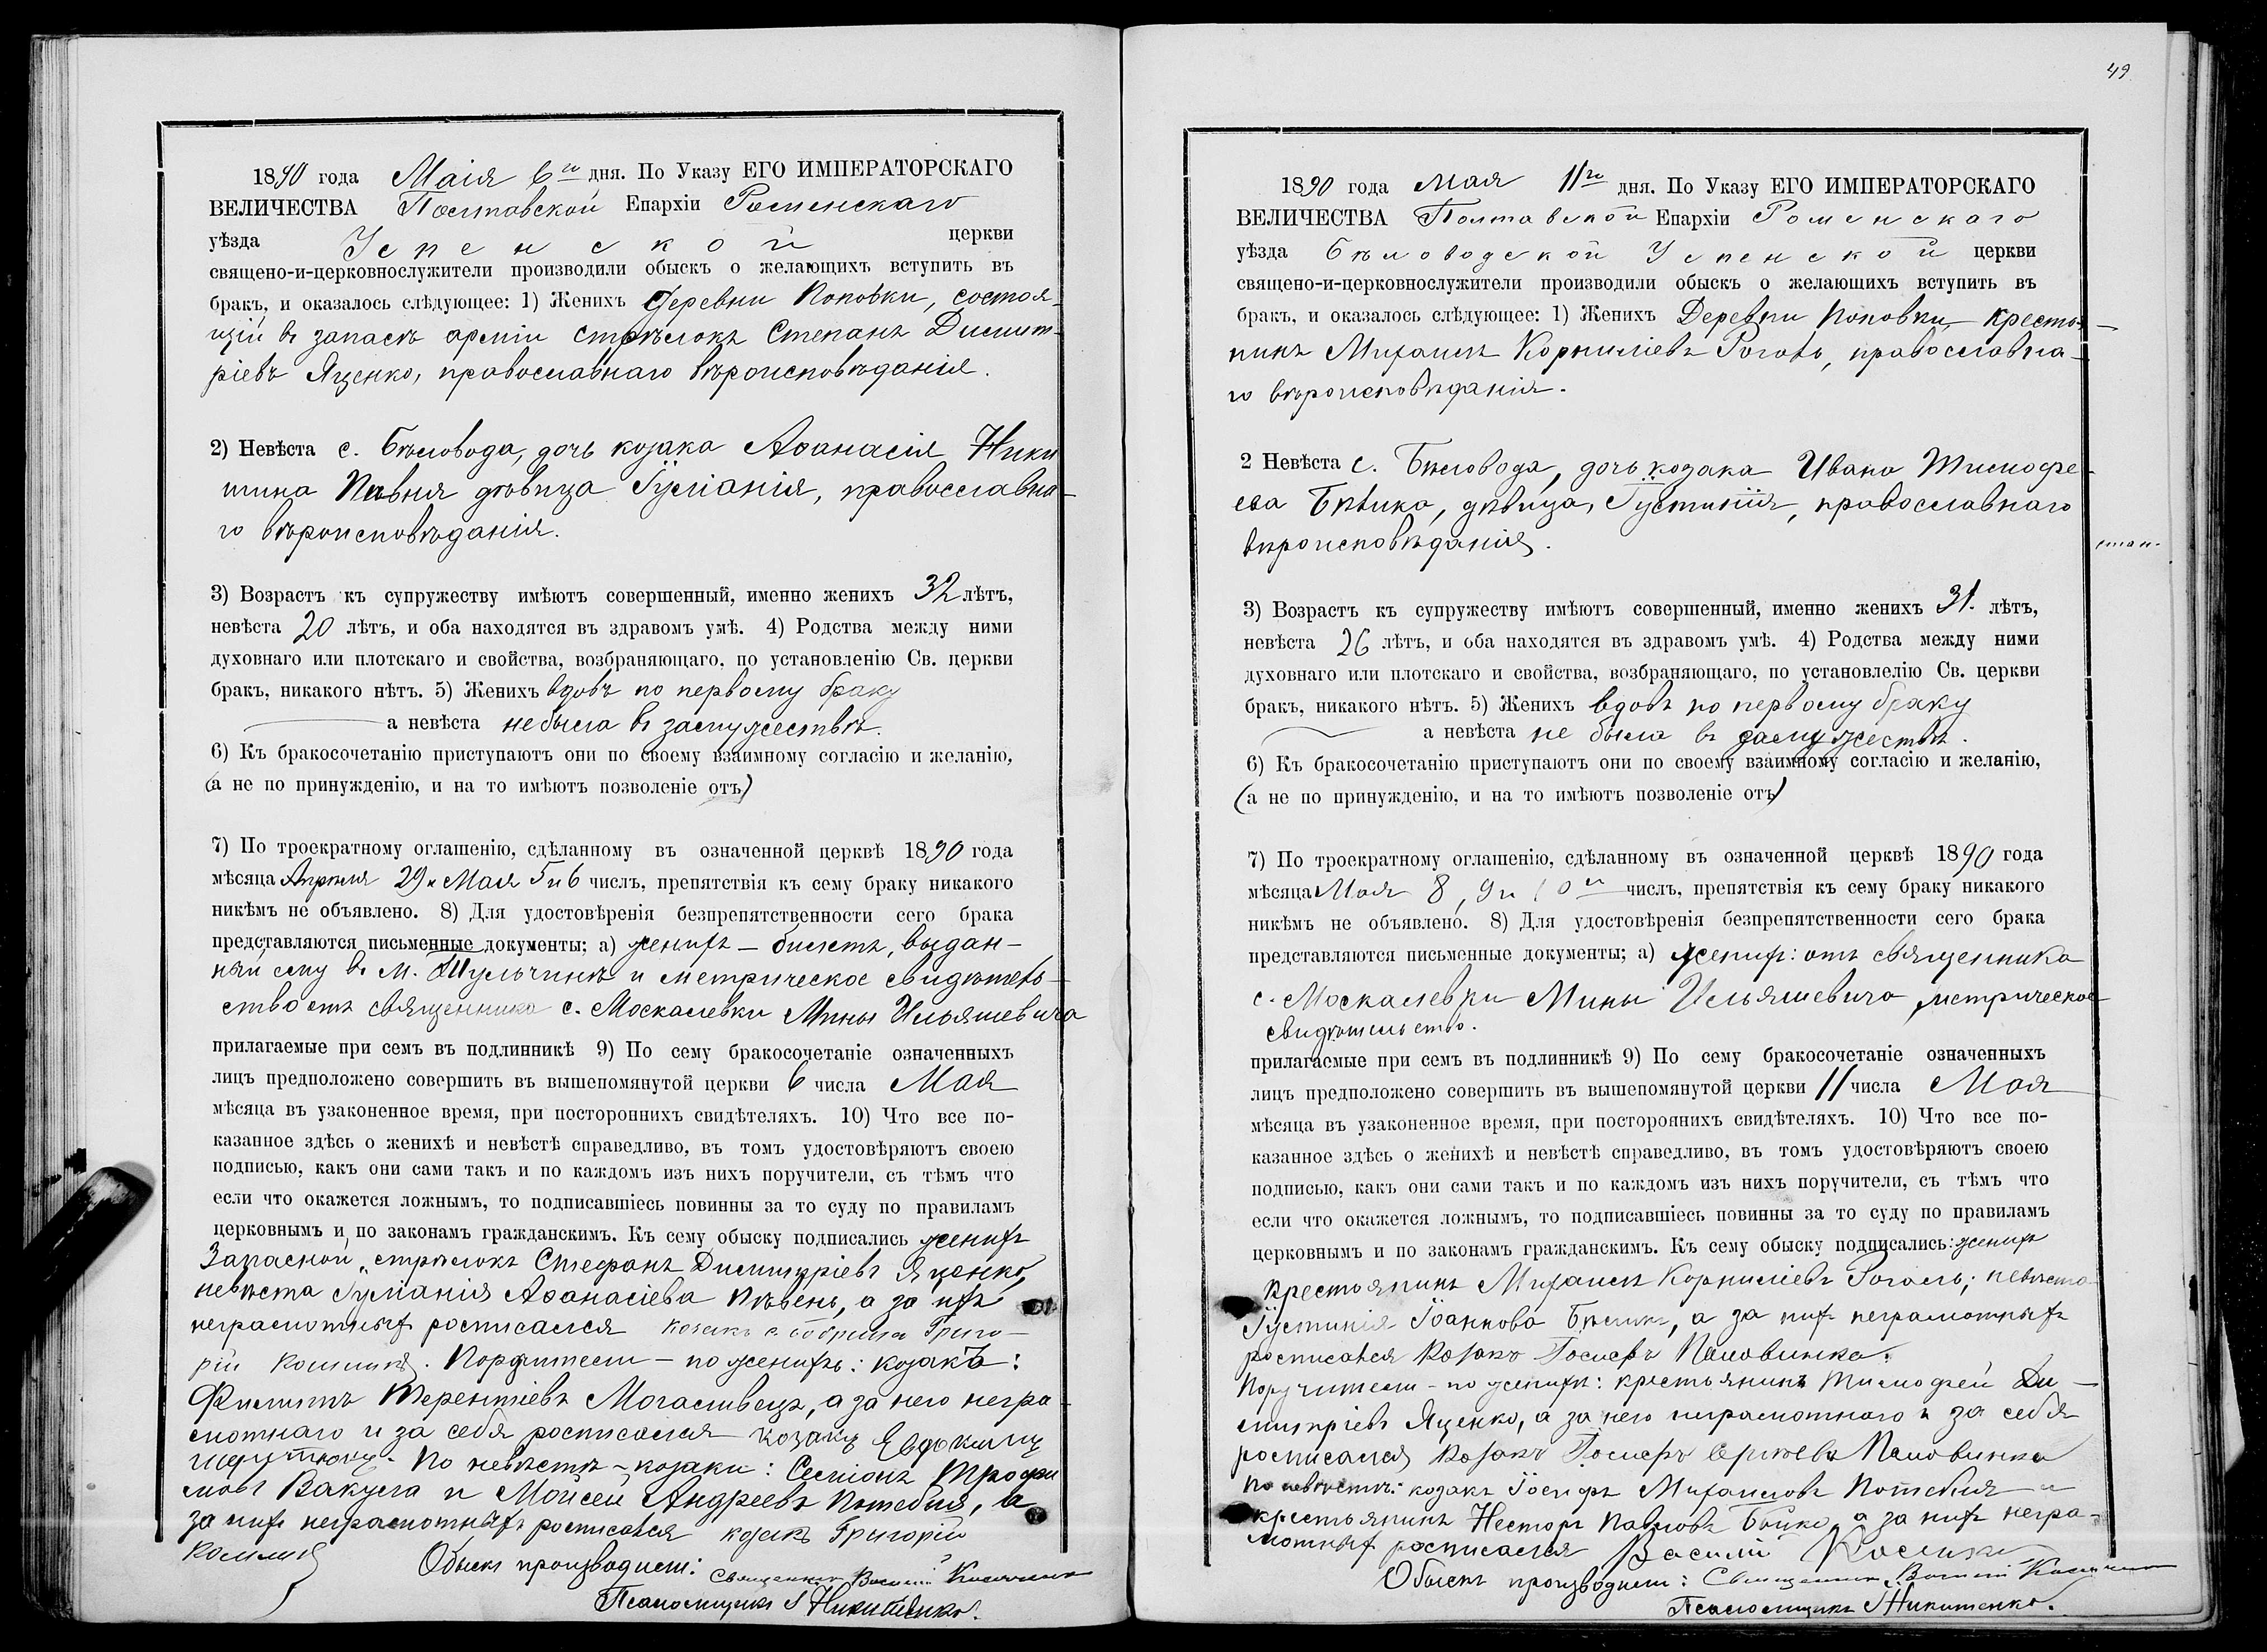 1890 года Маія 6го дня. По Указу ЕГО ИМПЕРАТОРСКАГО
ВЕЛИЧЕСТВА Полтавской Епархіи Роменскаго
уѣзда Успенской церкви
священо-и-церковнослужители производили обыскъ о желающихъ вступить въ
бракъ, и оказалось слѣдующее: 1) Женихъ Деревни Поповки, состоя-
щій въ запасѣ арміи стрѣлокъ Степанъ Димит-
ріевъ Яценко, православнаго вѣроисповѣданія.
2) Невѣста с. Бѣловода, дочь козака Аѳанасія Ники
тина Пѣвня дѣвица Іуліанія, православна-
го вѣроисповѣданія.
3) Возрастъ къ супружеству имѣютъ совершенный, именно женихъ 32 лѣтъ,
невѣста 20 лѣтъ, и оба находятся въ здравомъ умѣ. 4) Родства между ними
духовнаго или плотскаго и свойства, возбраняющаго, по установленію Св. церкви
бракъ, никакого нѣтъ. 5) Женихъ вдовъ по первому браку
а невѣста не была въ замужествѣ.
6) Къ бракосочетанію приступаютъ они по своему взаимному согласію и желанію,
(а не по принужденію, и на то имѣютъ позволеніе отъ)
7) По троекратному оглашенію, сдѣланному въ означенной церквѣ 1890 года
мѣсяца Апрѣля 29 и Мая 5 и 6 числъ, препятствія къ сему браку никакого
никѣмъ не объявлено. 8) Для удостовѣренія безпрепятственности сего брака
представляются письменные документы; а) женихъ — билетъ, выдан-
ный ему въ м. Тульчинѣ и метрическое свидѣтель-
ство отъ священника с. Москалевки Мины Ильяшевича
прилагаемые при семъ въ подлинникѣ 9) По сему бракосочетаніе означенныхъ
лицъ предположено совершить въ вышепомянутой церкви 6 числа Мая
мѣсяца въ узаконенное время, при постороннихъ свидѣтеляхъ. 10) Что все по-
казанное здѣсь о женихѣ и невѣстѣ справедливо, въ томъ удостовѣряютъ своею
подписью, какъ они сами такъ и по каждомъ изъ нихъ поручители, съ тѣмъ что
если что окажется ложнымъ, то подписавшіесь повинны за то суду по правиламъ
церковнымъ и по законамъ гражданскимъ. Къ сему обыску подписались женихъ
Запасной стрѣлокъ Стефанъ Димитріевъ Яценко,
невѣста Іуліанія Аѳанасіева Пѣвень, а за ихъ
неграмотныхъ росписался козакъ Григо-
рій. Поручители — по женихѣ: козакъ:
Филиппъ Терентіевъ Могаливецъ, а за него негра-
мотнаго и за себя росписался козакъ Евдокимъ
По невѣстѣ — козаки: Семіонъ Трофи
мовъ Вакула и Мойсей Андреевъ Потебня, а
за нихъ неграмотныхъ росписался козакъ Григорій
Обыскъ производили: Священникъ Василій
Псаломщикъ І Никитенко.
49
1890 года Мая 11го дня. По Указу ЕГО ИМПЕРАТОРСКАГО
ВЕЛИЧЕСТВА Полтавской Епархіи Роменскаго
уѣзда Бѣловодской Успенской церкви
священо-и-церковнослужители производили обыскъ о желающихъ вступить въ
бракъ, и оказалось слѣдующее: 1) Женихъ Деревни Поповки крестья-
нинъ Михаилъ Корниліевъ Роговъ, православна-
го вѣроисповѣданія.
2 Невѣста с. Бѣловода, дочь козака Ивана Тимофе-
ева Бѣлика, дѣвица, Іустинія, православнаго
вѣроисповѣданія.
3) Возрастъ къ супружеству имѣютъ совершенный, именно женихъ 31. лѣтъ,
невѣста 26 лѣтъ, и оба находятся въ здравомъ умѣ. 4) Родства между ними
духовнаго или плотскаго и свойства, возбраняющаго, по установлелію Св. церкви
бракъ, никакого нѣтъ. 5) Женихъ вдовъ по первому браку
а невѣста не была въ замужествѣ.
6) Къ бракосочетанію приступаютъ они по своему взаимному согласію и желанію,
(а не по принужденію, и на то имѣютъ позволеніе отъ)
7) По троекратному оглашенію, сдѣланному въ означенной церквѣ 1890 года
мѣсяца Мая 8, 9 и 10 числъ, препятствія къ сему браку никакого
никѣмъ не объявлено. 8) Для удостовѣренія безпрепятственности сего брака
представляются письменные документы; а) женихъ: отъ священника
с. Москалевки Мины Ильяшевича метрическое
свидѣтельство.
прилагаемые при семъ въ подлинникѣ 9) По сему бракосочетаніе означенныхъ
лицъ предположено совершить въ вышепомянутой церкви 11 числа Мая
мѣсяца въ узаконенное время, при постороннихъ свидѣтеляхъ. 10) Что все по-
казанное здѣсь о женихѣ и невѣстѣ справедливо, въ томъ удостовѣряютъ своею
подписью, какъ они сами такъ и по каждомъ изъ нихъ поручители, съ тѣмъ что
если что окажется ложнымъ, то подписавшіесь повинны за то суду по правиламъ
церковнымъ и по законамъ гражданскимъ. Къ сему обыску подписались: женихъ
крестьянинъ Михаилъ Корниліевъ Роговъ; невѣста
Іустинія Іоаннова Бѣлик, а за нихъ неграмотныхъ
росписался козакъ Паловинка.
Поручители — по женихѣ: крестьянинъ Тимофей Ди-
митріевъ Яценко, а за него неграмотнаго и за себя
росписался козакъ Паловинка
по невѣстѣ: козакъ Іосифъ Михаиловъ Потебня и
крестьянинъ Несторъ Павловъ Бойко, а за нихъ негра-
мотныхъ росписался Василій
Обыскъ производили: Священникъ Василій
Псаломщикъ І Никитенко.